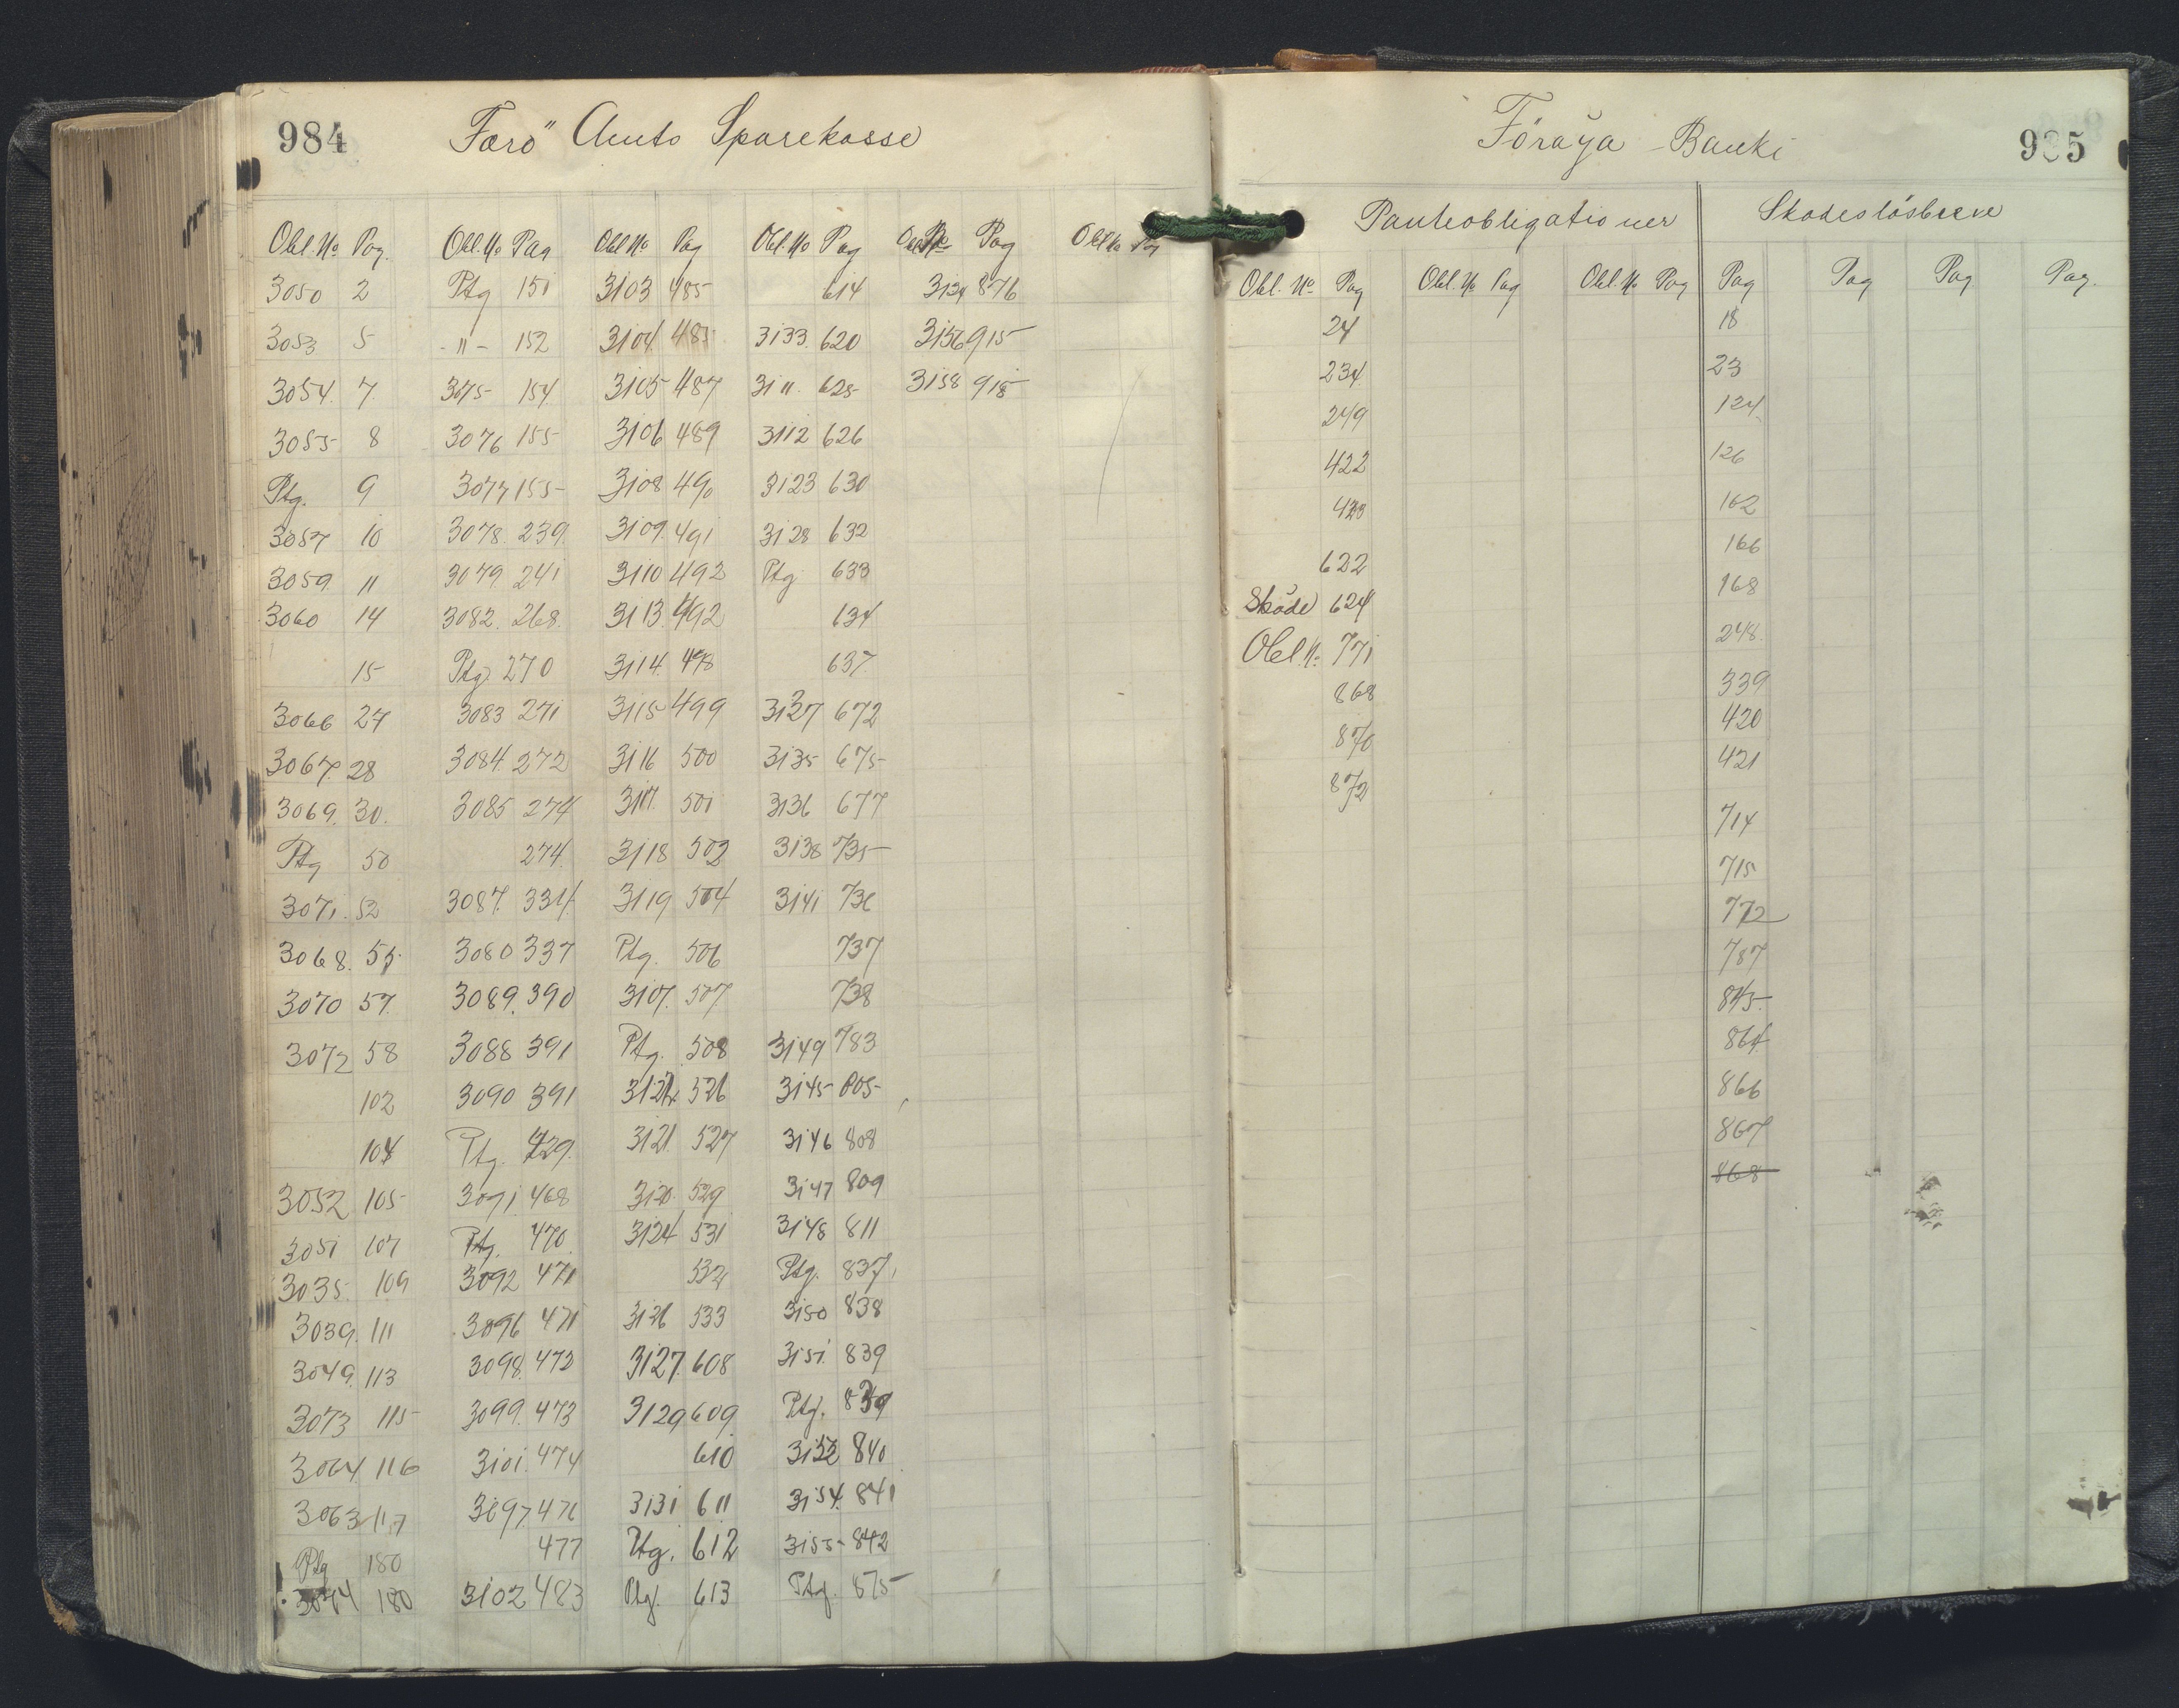 984
Færö Amts Sparekasse
Obl. No Pag. Obl. No Pag Obl No Pag Obl. No Pag Pag Obl No Pag
3050 2 Ptg 151 3103 485 614 3134 876
3053 5 -"- 152 3104 485 3133 620 3156 915
3054 7 3075 154 3105 487 3111 625 3158 918
3055 8 3076 155 3106 489 3112 626
Ptg. 9 3077 155 3108 490 3123 630
3057 10 3078. 239. 3109. 491 3128 632
3059 11 3079 241 3110 492 Ptg 633
3060 14 3082. 268. 3113. 492 634
15 Ptg 270 3114. 498 637
3066 27 3083 271 3115 499 3127 672
3067. 28 3084. 272 3116 500 3135 675
3069. 30. 3085 274 3117. 501 3136 677
Ptg 50 274. 3118 502 3138 735
3071. 52 3087. 334. 3119 504 3141 736
3068. 55 3080 337 Ptg. 506 737
3070 57. 3089. 390 3107. 507. 738
3072 58 3088 391 Ptg. 508 3149 783
102 3090 391 526 3145 805
104 Ptg. 429. 3121 527 3146 808
3052 105 3071 468 3120. 529 3147 809
3051 107 Ptg. 470. 3124 531 3148 811
3035. 109 3092 471 532 Ptg. 837.
3039. 111 3096 471 3126 533 3150 838
3049. 113 3098. 472 3127. 608 3151. 839
3073 115 3099. 473 3129 609 Ptg. 839
3064 116 3101. 474 610 3152 840
3063 117 3097. 476 3131 611 3154. 841
Ptg 180 477 Ptg. 612 3155 842
3074 180 3102 483 Ptg. 613 Ptg. 875
Föroya Banki
985
Panteobligationer Skadeslösbreve
Obl. No Pag Obl. No Pag Obl. No Pag Pag Pag Pag Pag.
24 18
234. 23
249 124
422 126
423 162
622 166
Sköde 624 168
Obl. No 771 248.
868 339
870 420
872 421
714
715
772
787
845.
864
866
867
868